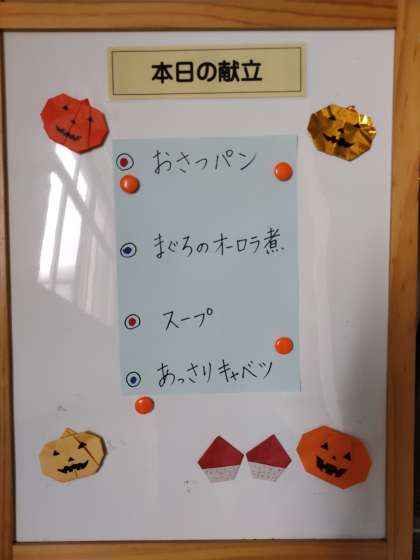 本日の献立
おさつパン
まぐろのオーロラ煮
スープ
あっさりキャベツ